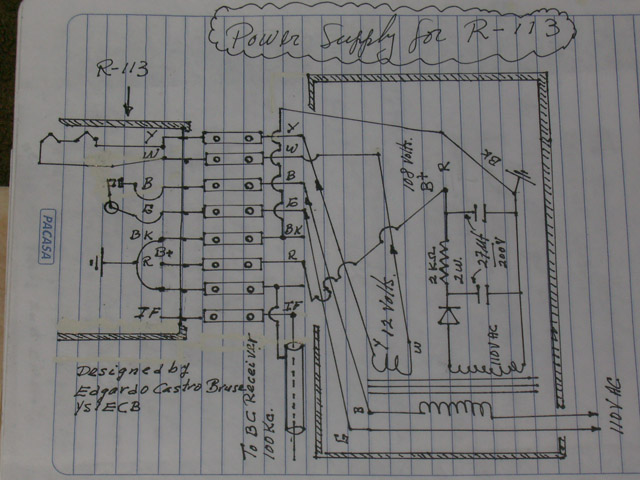 Power Supply for R-113
R-113
Y
W
B
G
BK
B+
R
IF
Y
W
B
G
BK
R
IF
108 Volts.
B+
R
BK
2 KΩ
2 W.
27µf
200V
12 Volts.
Y
W
110V AC
B
G
110V AC
To BC Receiver
100 Kc.
Designed by
Edgardo Castro Bruse
YS1ECB
PACASA